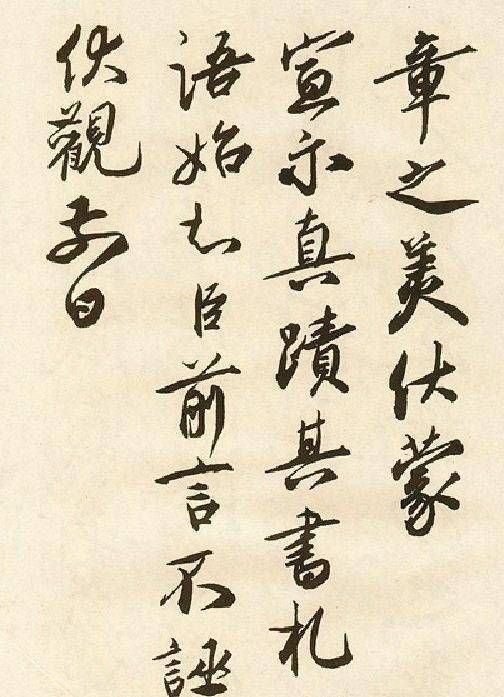 章之美伏蒙
宣示真蹟其書札
語始知臣前言不誣
伏觀日